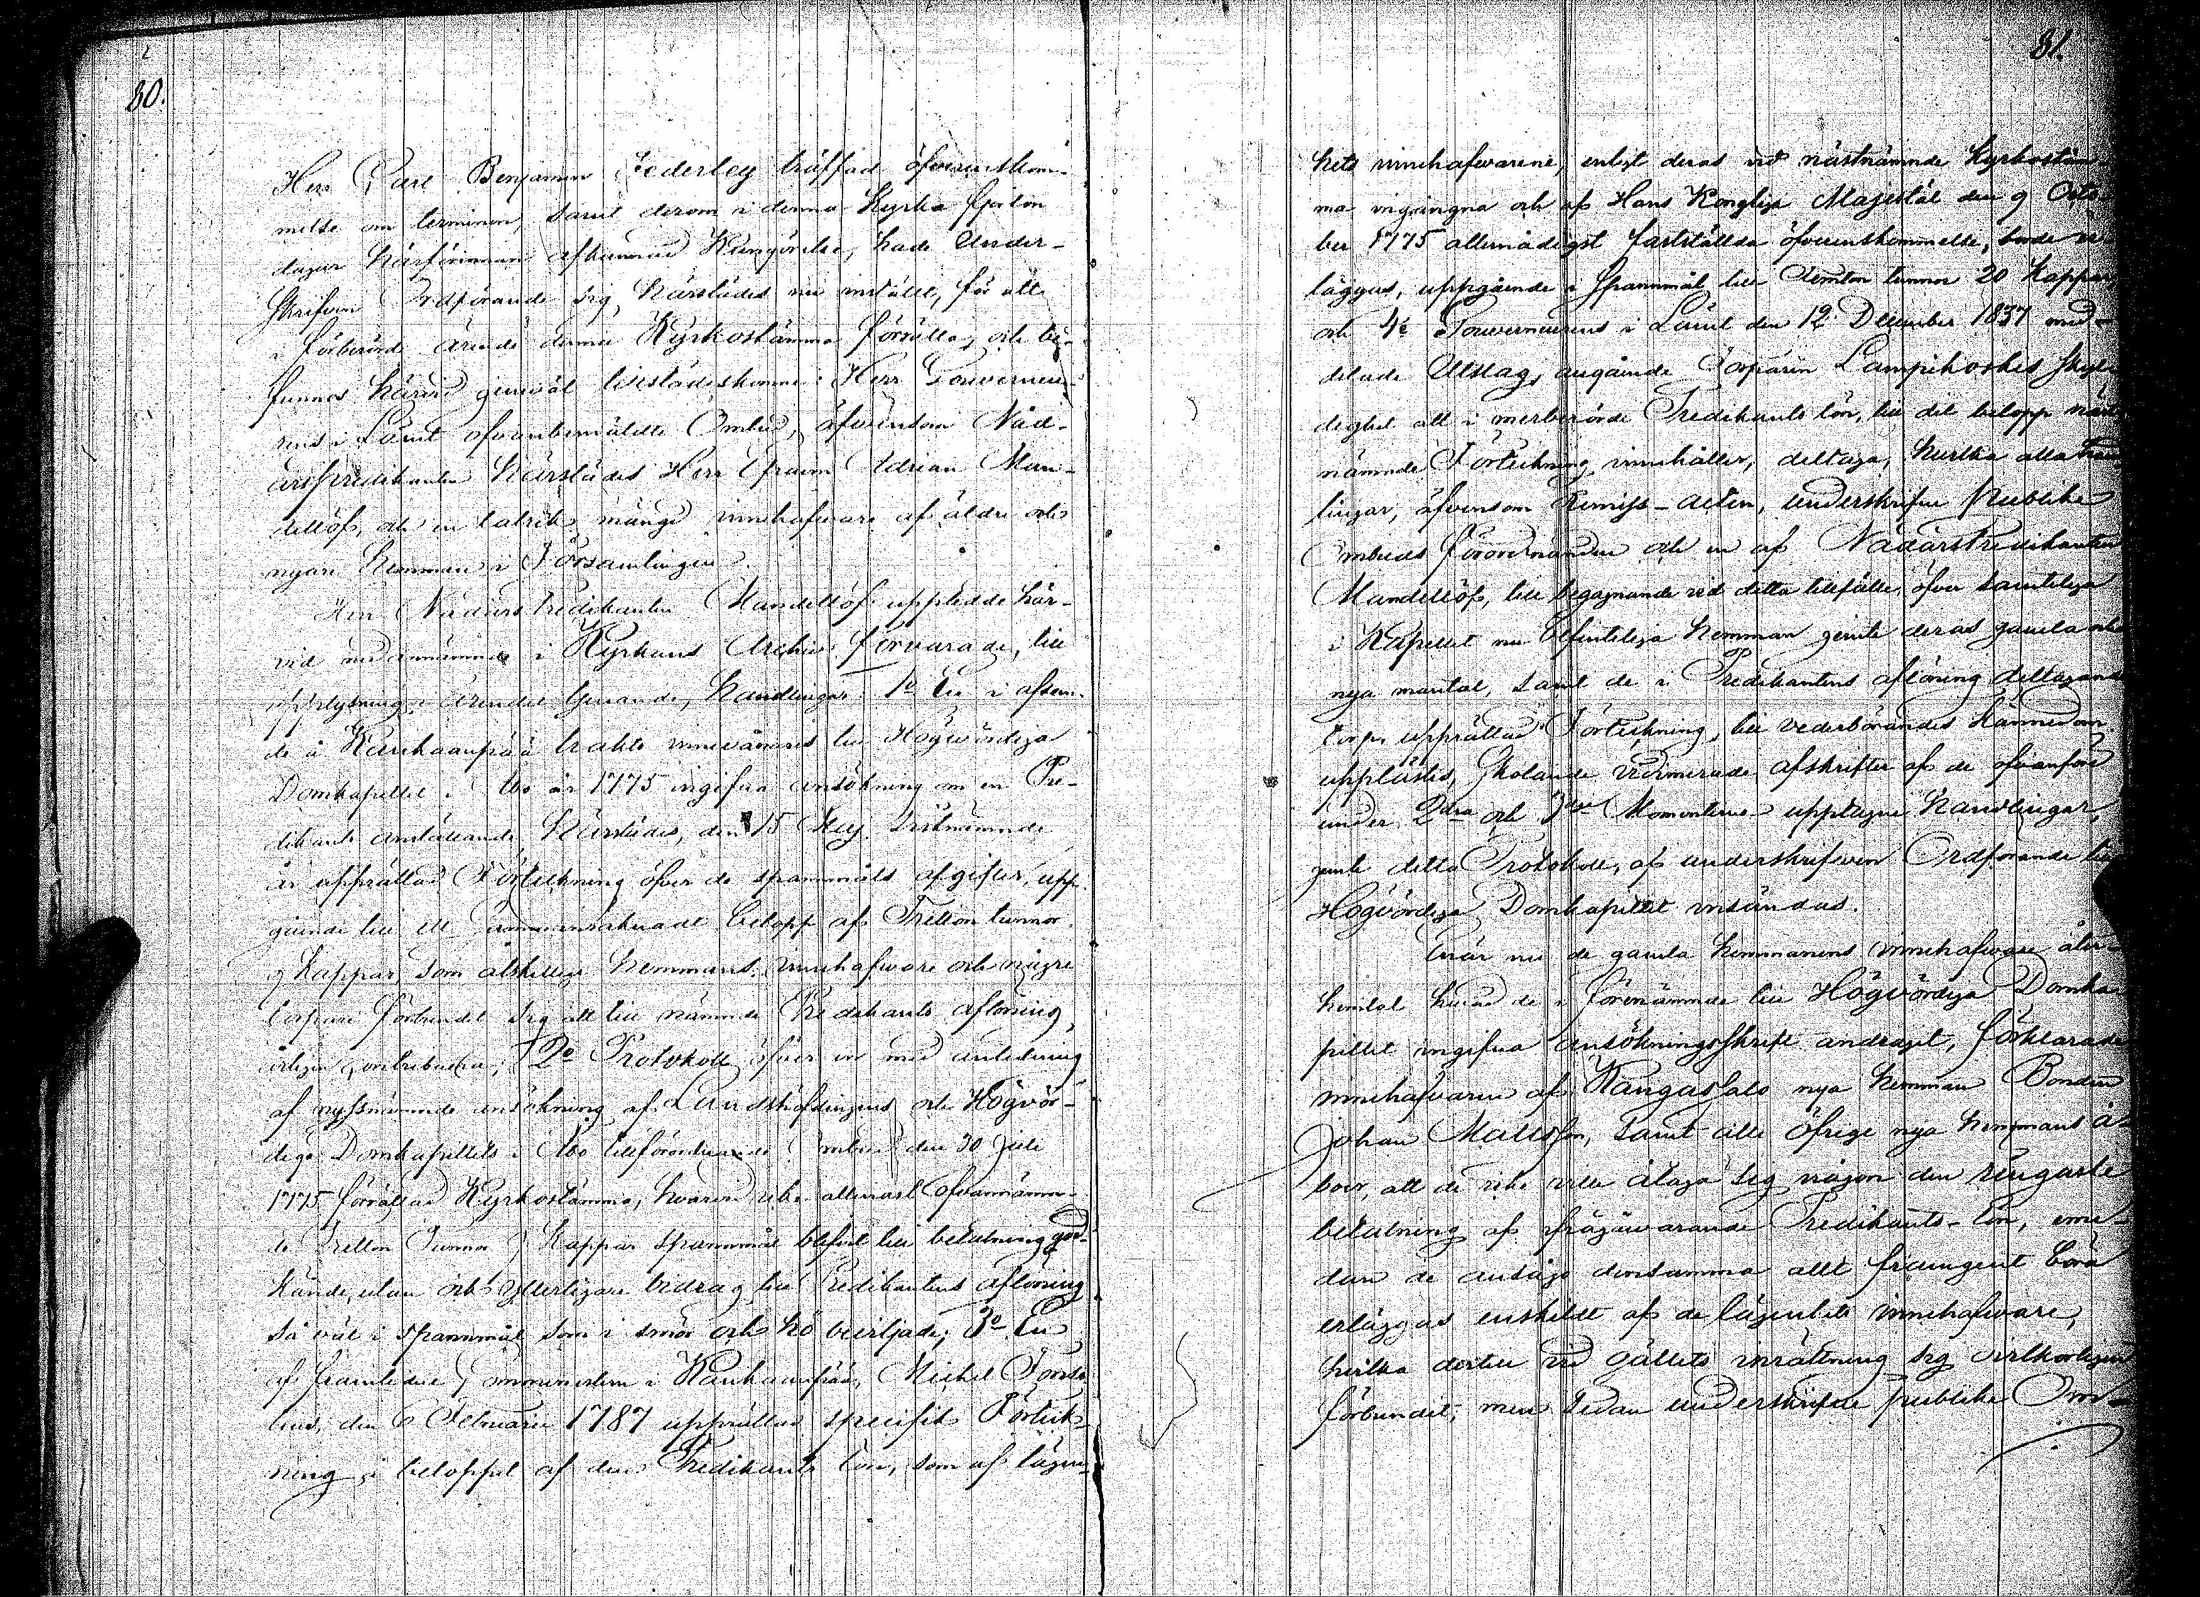 80.
Herr Carl Benjamin Federley träffad öfverenskom-
melse om terminen, samt derom i denna Kyrka fjorton
dagar härförinnan afkunnad Kungörelse, hade Under-
skrifven Ordförande sig härstädes nu inställt, för att
i förberörde ärende denna Kyrkostämma förrätta, och be-
funnos härvid jemväl tillstädeskomne: Herr Gouverneu-
rens i Länet ofvanbemälte Ombud, äfvensom Nåd-
årspredikanten härstädes Herr Efraim Adrian Man-
dellöf, och en talrik mängd innehafvare af äldre och
nyare Hemman i Församlingen.
Herr Nådårs Predikanten Mandellöf uppledde här-
vid nedannämnde i Kyrkans Archiv förvarade, till
upplysning i ärendet tjenande, handlingar: 1o En i afseen-
de å Kauhaanpää trakts innevånares till Högvördiga
Domkapitlet i Åbo år 1775 ingifna ansökning om en Pre-
dikants anställande härstädes, den 15 Maj sistnämnde
år upprättad Förteckning öfver de spannmåls afgifter, upp-
gående till ett sammanräknadt belopp af Tretton tunnor
9 kappar, som åtskillige hemmans innehafvare och någre
torpare förbundit sig att till nämnde Predikants aflöning
årligen contribuera; 2o Protokoll öfver en med anledning
af nyssnämnde ansökning af Landshöfdingens och Högvör-
dige Domkapitlets i Åbo tillförordnade Ombud den 30 Julii
1775 förrättad Kyrkostämma, hvarvid icke allenast ofvannämn-
de Tretton Tunnor 9 Kappar spannmål blifvit till betalning god-
kände, utan ock ytterligare bidrag till Predikantens aflöning
så väl i spannmål som i smör och hö beviljade; 3o En
af framledne Comministern i Kauhanpää, Michel Forste-
lius, den 6 Februarii 1787 upprättad specifik Förteck-
ning å beloppet af den Predikants lön, som af lägen-
81.
hets innehafvarene, enligt deras vid nästnämnde Kyrkostäm-
ma ingångna och af Hans Kongliga Majestät den 9 Octo-
ber 1775 allernådigst fastställda öfverenskommelse, borde er-
läggas, uppgående i Spannmål till Femton tunnor 20 kappar,
och 4o Gouverneurens i Länet den 12 December 1837 med-
delade Utslag, angående Torparen Lampikoskis skyl-
dighet att i merberörde Predikants lön, till det belopp näst-
nämnde Förteckning innehåller, deltaga, hvilka alla hand-
lingar, äfvensom Remiss-Acten, underskrifven Publike
Ombuds förordnanden och en af Nådårs Predikanten
Mandellöf, till begagnande vid detta tillfälle, öfver samteliga
i Kapellet nu befinteliga hemman jemte deras gamla och
nya mantal, samt de i Predikantens aflöning deltagande
torp, upprättad Förteckning, till vederbörandes kännedom
upplästes, Skolande vidimerade afskrifter af de ofvanföre
under 2dra och 3dje Momenterne upptagne handlingar,
jemte detta Protokoll, af underskrifven Ordförande till
Högvördiga Domkapitlet insändas.
Enär nu de gamla hemmanens innehafvare åter-
hemtat hvad de i förenämnde till Högvördiga Domka-
pitlet ingifna ansökningsskrift andragit, förklarade
innehafvaren af Kangassalo nya hemman Bonden
Johan Mattsson, samt alle öfrige nya hemmans å-
boer, att de icke ville åtaga sig någon den ringaste
betalning af ifrågavarande Predikants-lön, eme-
dan de ansågo densamma allt framgent böra
erläggas enskildt af de lägenhets innehafvare,
hvilka dertill vid gällets inrättning sig virkorligen
förbundit; men sedan underskrifne publike Om-